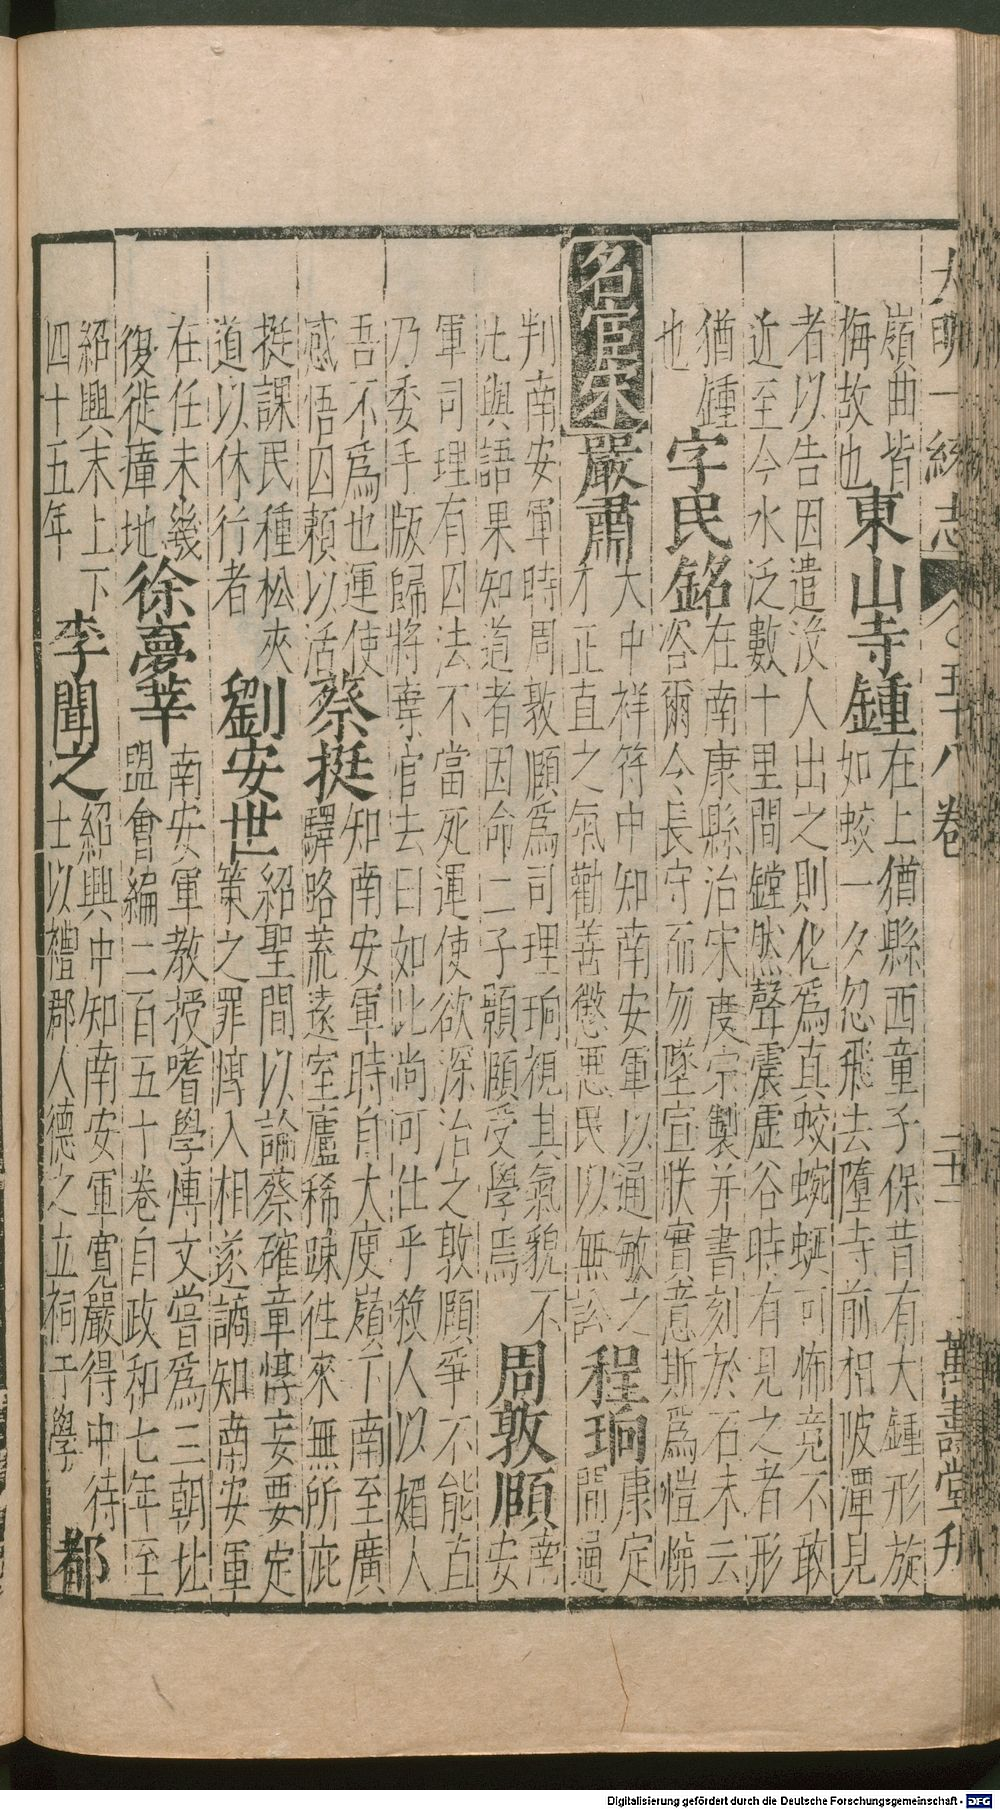 大明一統志 卷之五十八卷 二十二 萬壽堂刊
嶺曲皆
梅故也東山寺鍾在上猶縣西童子保昔有大鍾形旋
如蛟一夕忽飛去墮寺前相陂潭見
者以告因遣沒人出之則化為真蛟蜿蜒可怖竟不敢
近至今水泛數十里間鏜然聲震虛谷時有見之者形
猶鍾
也字民銘在南康縣治宋度宗製并書刻於石末云
咨爾令長守而勿墜宣朕實意斯為愷悌
名宦宋嚴肅大中祥符中知南安軍以通敏之
才正直之氣勸善懲惡民以無訟程珦康定
間通
判南安軍時周敦頤為司理珦視其氣貌不
凡與語果知道者因命二子顥頤受學焉周敦頤南
安
軍司理有囚法不當死運使欲深治之敦頤爭不能直
乃委手版歸將棄官去曰如此尚可仕乎殺人以媚人
吾不為也運使
感悟囚賴以活蔡挺知南安軍時自大庾嶺下南至廣
驛路荒遠室廬稀踈徃來無所庇
挺課民種松夾
道以休行者劉安世紹聖間以論蔡確章惇妄要定
策之罪惇入相遂謫知南安軍
在任未幾
復徙瘴地徐夢莘南安軍教授嗜學博文嘗為三朝北
盟會編二百五十卷自政和七年至
紹興末上下
四十五年李聞之紹興中知南安軍寬嚴得中待
士以禮郡人德之立祠于學都
Digitalisierung gefördert durch die Deutsche Forschungsgemeinschaft - DFG